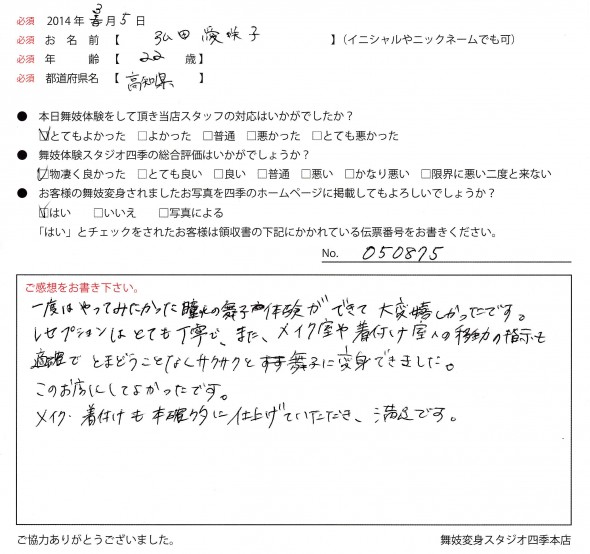 必須 2014年 3月 5日
必須 お名前【 弘田 愛咲子 】(イニシャルやニックネームでも可)
必須 年齢【 22 歳】
必須 都道府県名【 高知県 】
● 本日舞妓体験をして頂き当店スタッフの対応はいかがでしたか？
☑とてもよかった □よかった □普通 □悪かった □とても悪かった
● 舞妓体験スタジオ四季の総合評価はいかがでしょうか？
☑物凄く良かった □とても良い □良い □普通 □悪い □かなり悪い □限界に悪い二度と来ない
● お客様の舞妓変身されましたお写真を四季のホームページに掲載してもよろしいでしょうか？
☑はい □いいえ □写真による
「はい」とチェックをされたお客様は領収書の下記にかかれている伝票番号をお書きください。
No. 050875
ご感想をお書き下さい。
一度はやってみたかった 舞子体験ができて 大変嬉しかったです。
レセプションはとても丁寧で、また、メイク室や着付け室への移動の指示も
適確で とまどうことなくサクサクと 舞子に変身できました。
このお店にしてよかったです。
メイク・着付けも本確的に仕上げていただき、満足です。
ご協力ありがとうございました。
舞妓変身スタジオ四季本店